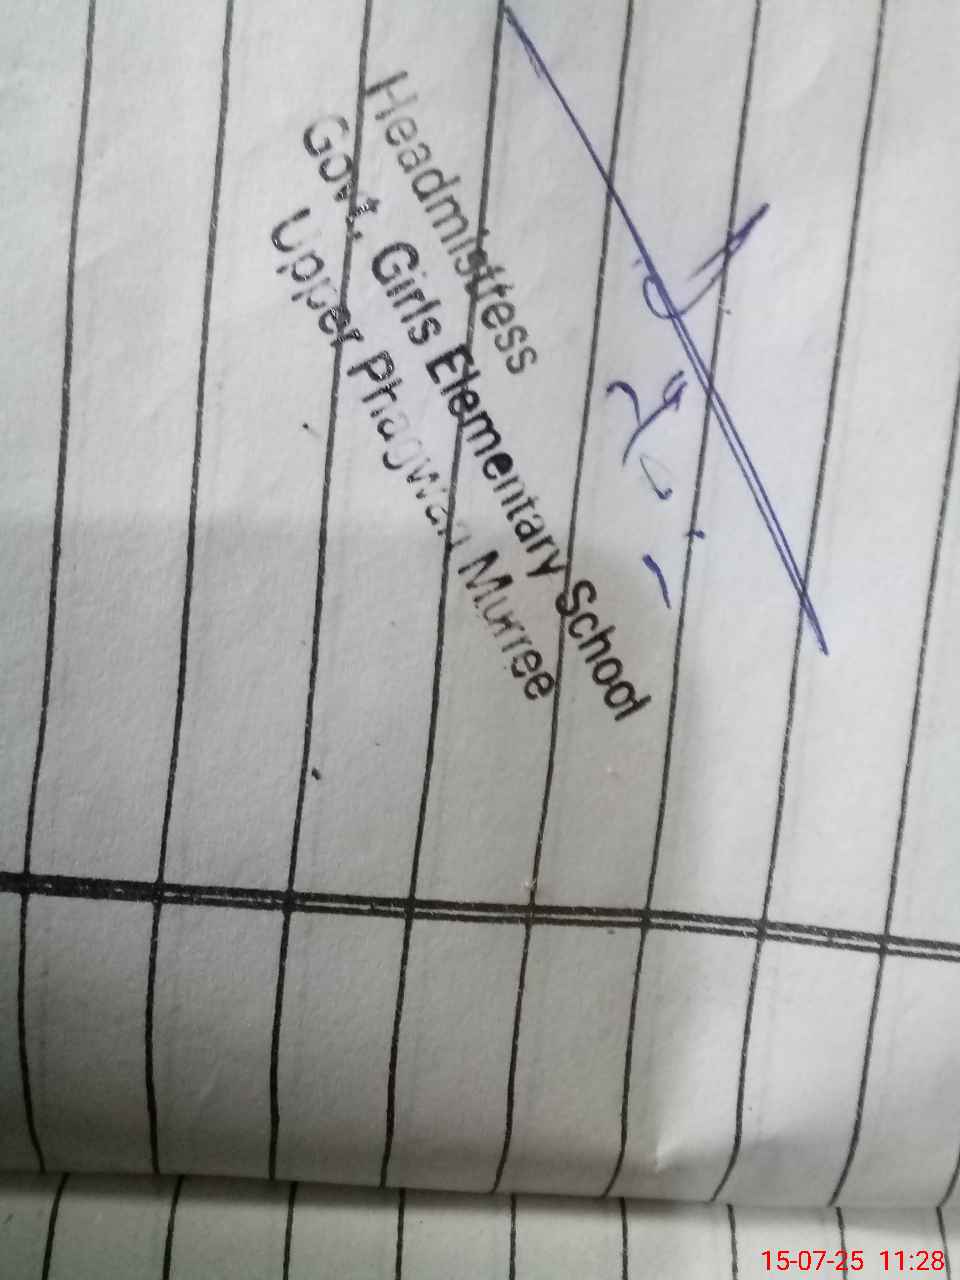 Headmistress
Govt. Girls Elementary School
Upper Phagwari Murree
15-07-25 11:28